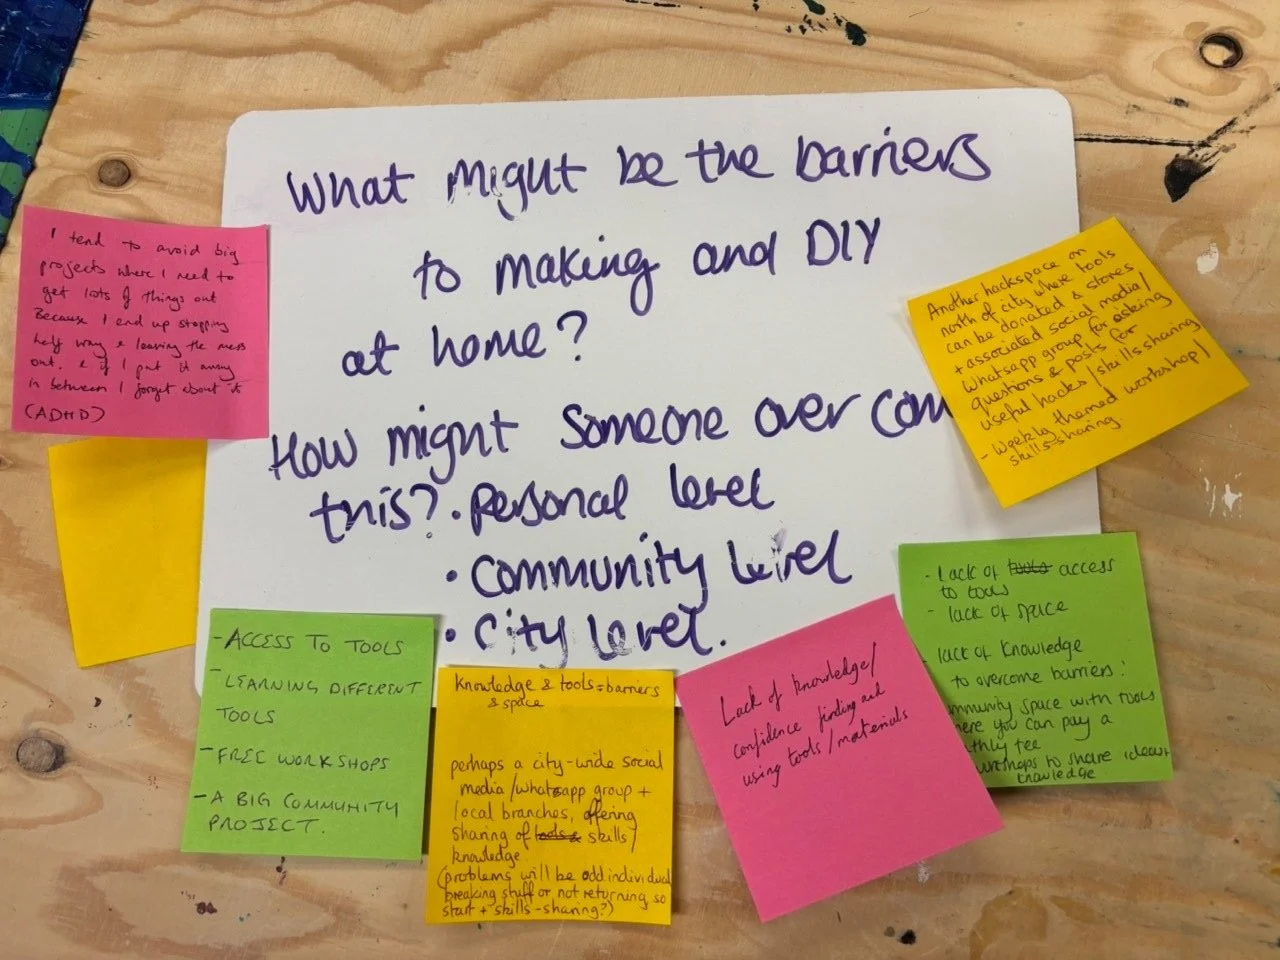 What might be the barriers
to making and DIY
at home?
How might someone over com
this? • Personal level
• Community level
• City level.
I tend to avoid big
projects where I need to
get lots of things out
Because I end up stopping
half way & leaving the mess
out. & if I put it away
in between I forget about it
(ADHD)
Another hackspace on
north of city where tools
can be donated & stores
+ associated social media/
Whatsapp group, for asking
questions & posts for
useful hacks/skills sharing
- Weekly themed workshop/
skills-sharing.
- ACCESS TO TOOLS
- LEARNING DIFFERENT
TOOLS
- FREE WORKSHOPS
- A BIG COMMUNITY
PROJECT.
Knowledge & tools = barriers
& space
perhaps a city-wide social
media/whatsapp group +
local branches, offering
sharing of tools & skills/
knowledge.
(problems will be odd individual
breaking stuff or not returning so
start + skills-sharing?)
Lack of knowledge/
confidence finding and
using tools/materials
- Lack of tools access
to tools
- lack of space
- lack of knowledge
to overcome barriers:
mmunity space with tools
here you can pay a
thly fee
to share ideas +
knowledge